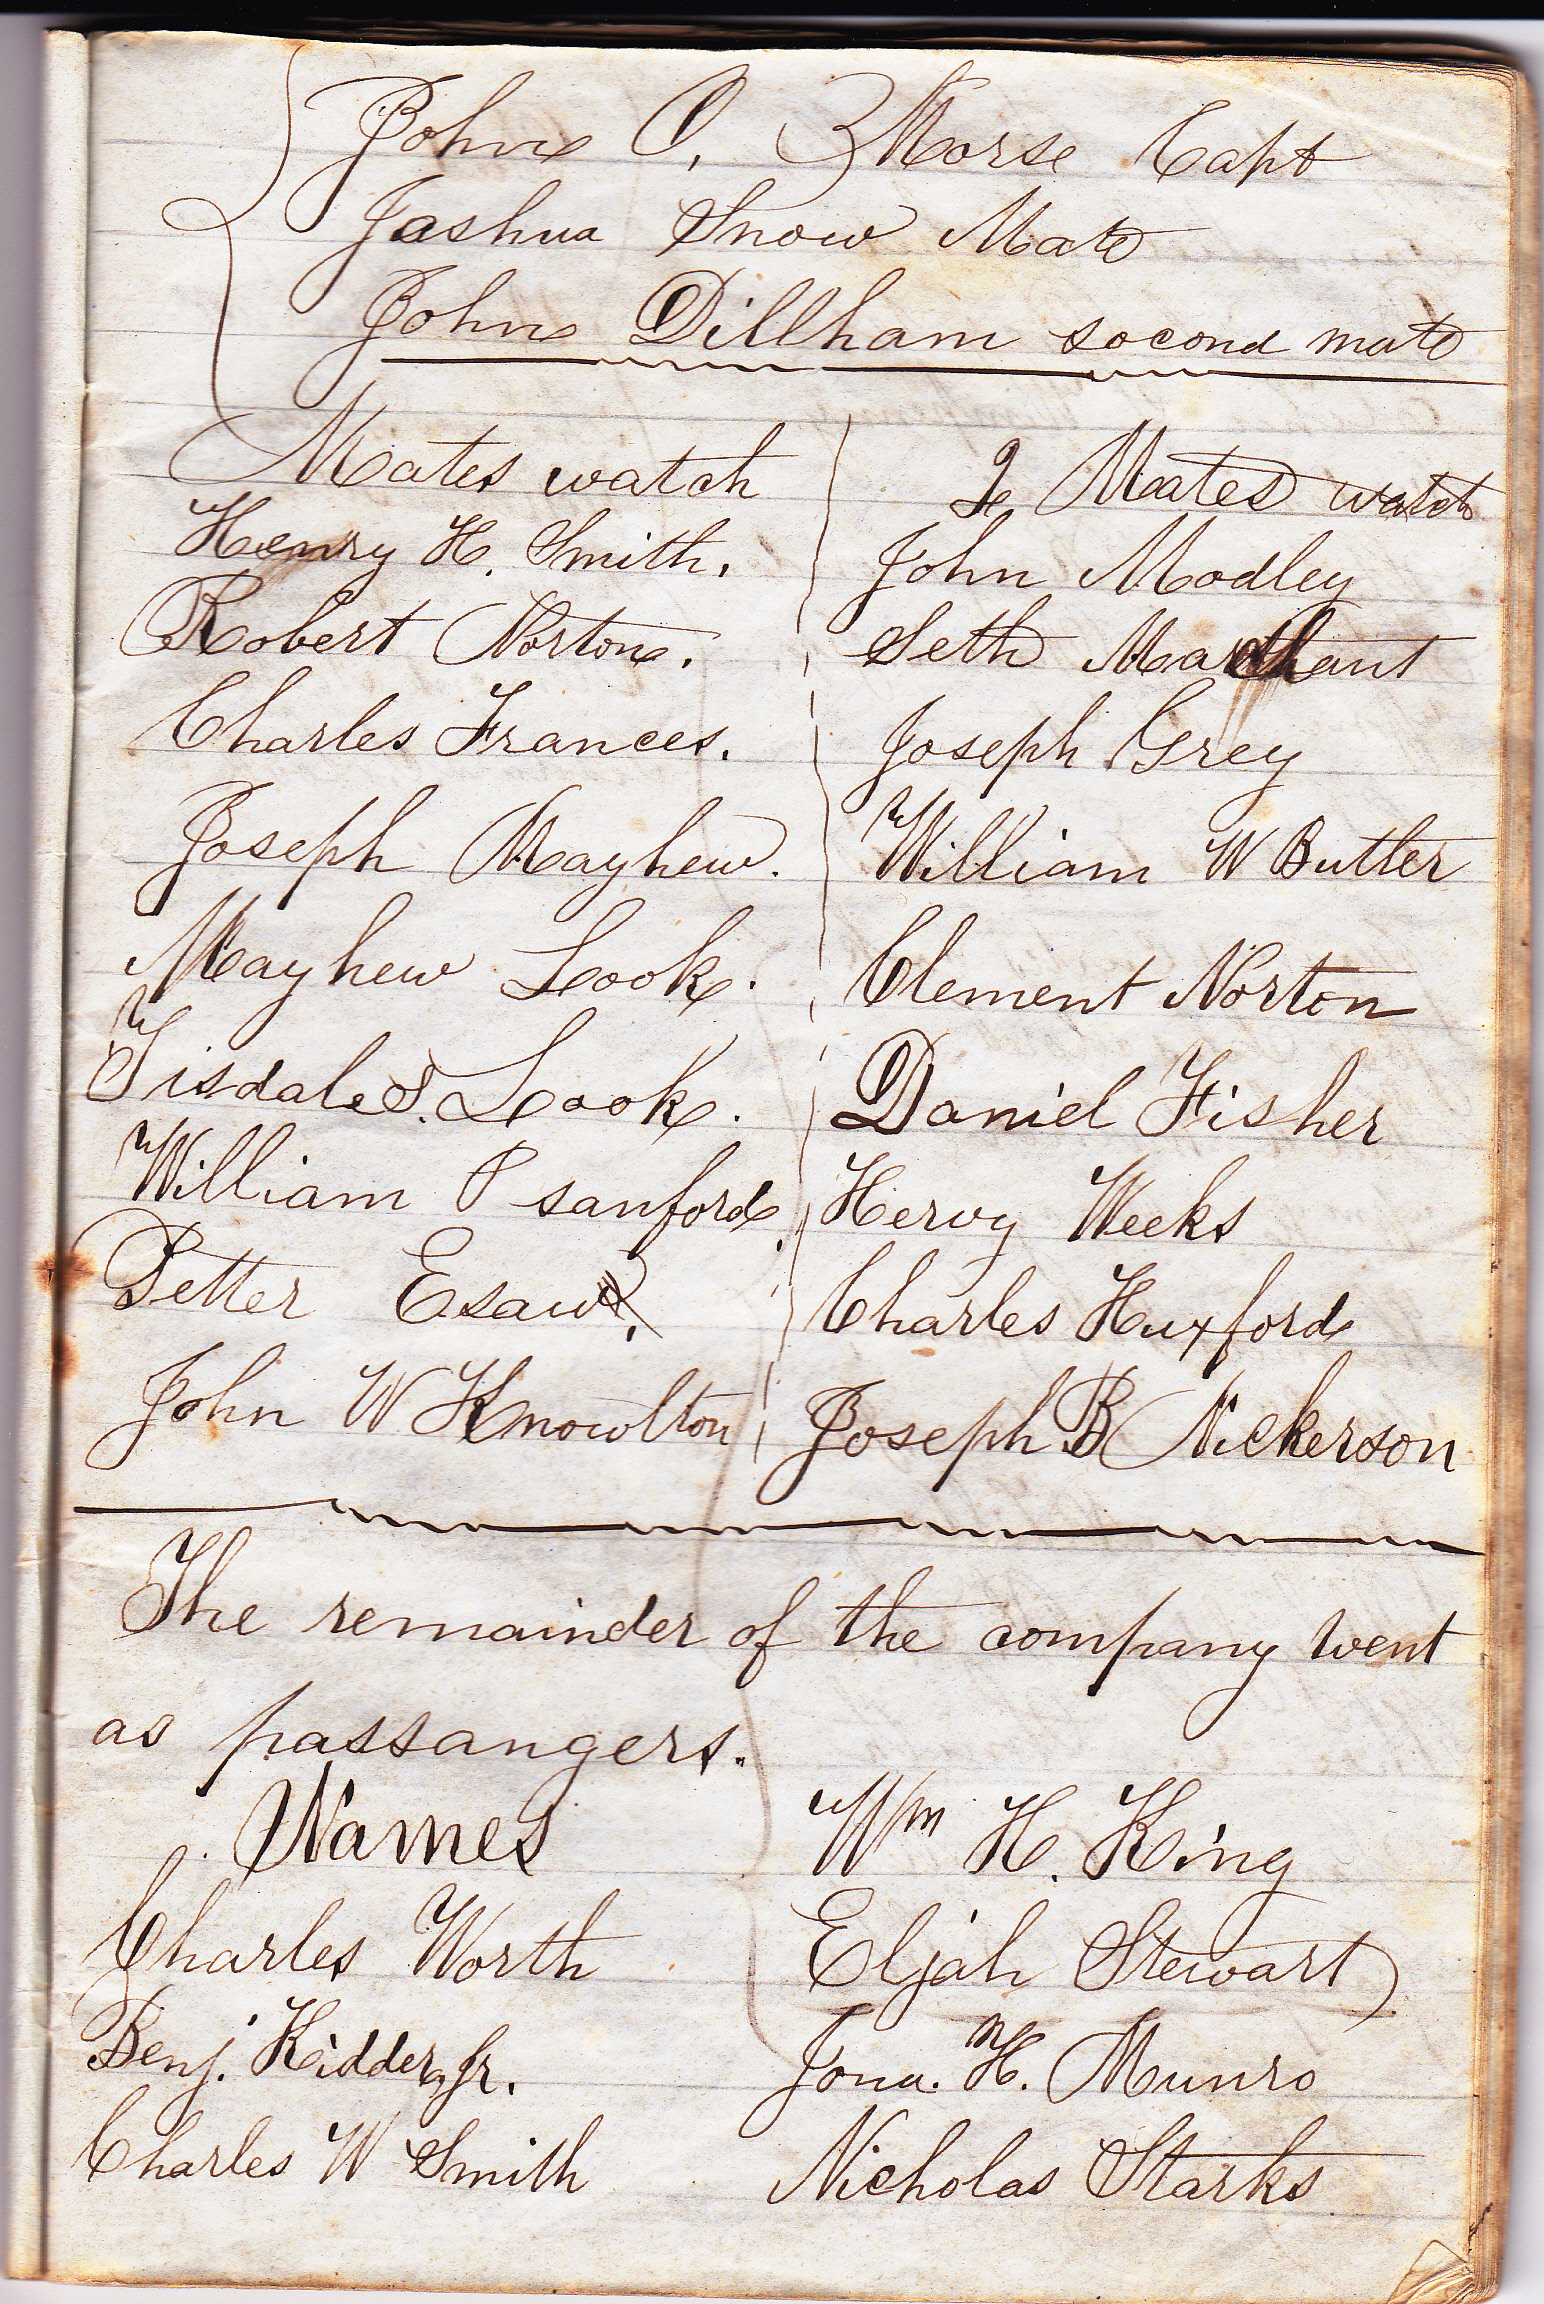 John O. Morse Capt
Jashua Snow Mate
John Dillham socond mate
Mates watch
Henry H. Smith.
Robert Norton.
Charles Frances.
Joseph Mayhew.
Mayhew Look.
Tisdale S. Look.
William P sanford.
Petter Esau.
John W Knowlton
2 Mates watch
John Modley
Seth Marchant
Joseph Grey
William W Butler
Clement Norton
Daniel Fisher
Hervy Weeks
Charles Huxford
Joseph B Nickerson
The remainder of the company went
as passangers.
Names
Charles Worth
Benj. Kidder, Jr.
Charles W Smith
Wm H. King
Eljah Stewart
Jona. H. Munro
Nicholas Starks